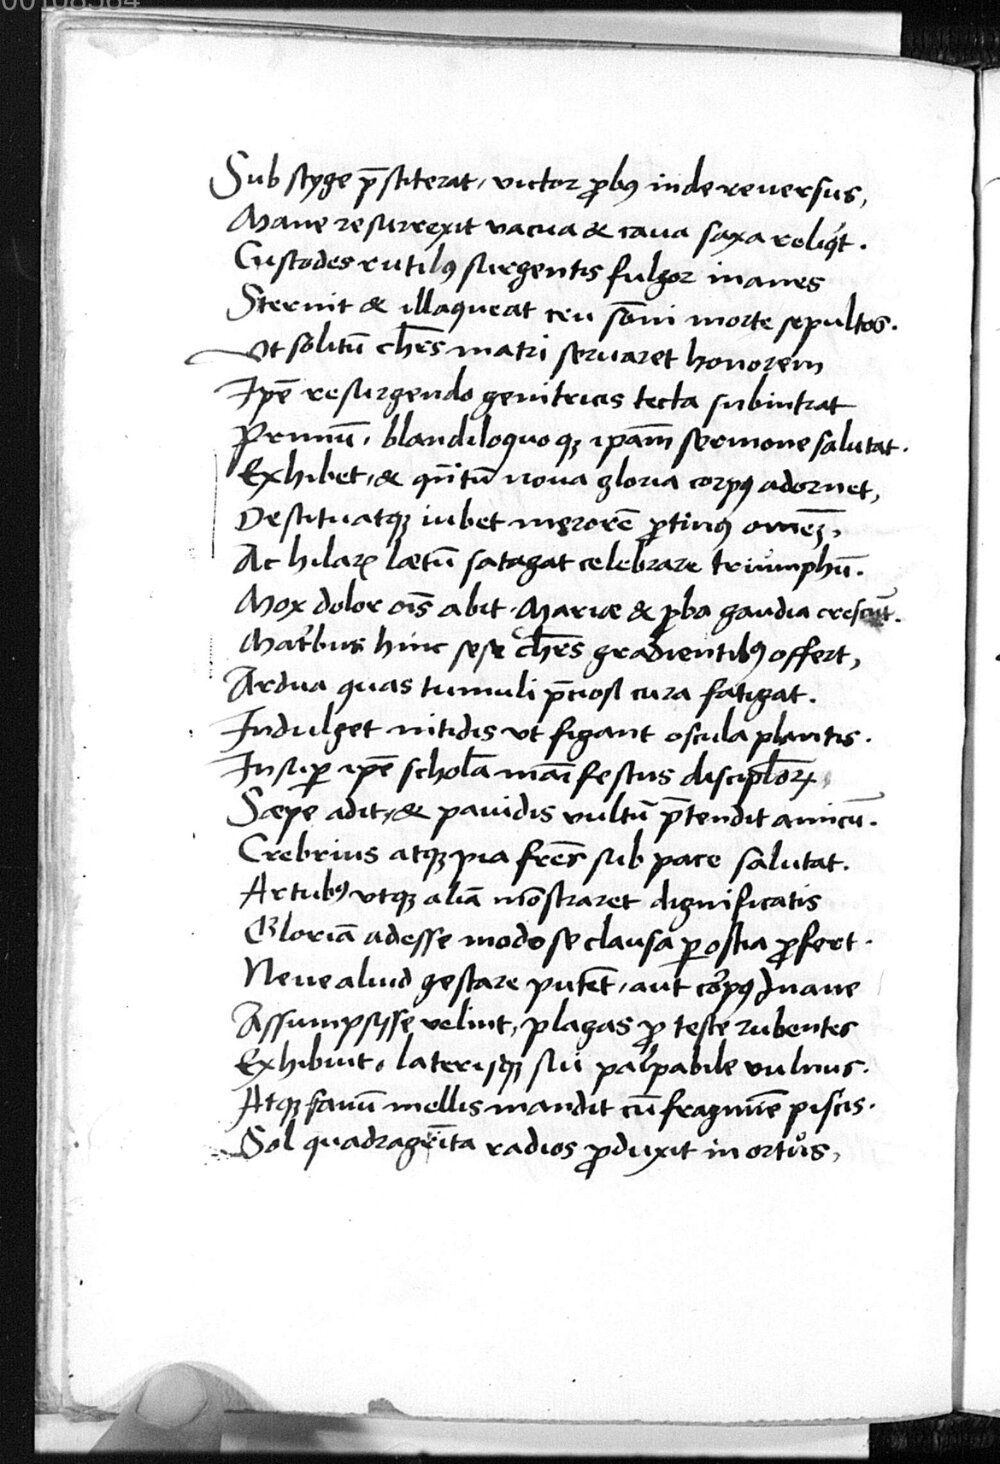 00108584
Sub styge p̄stiterat, victor ꝓbꝰ inde reuersus,
Mane resurrexit vacua & caua saxa reliq̇t.
Custodes rutilꝰ surgentis fulgor inanes
Sternit & illaqueat ceu som̄i morte sepultos.
Vt solitū chr̄s matri seruaret honorem
Ip̄e resurgendo genitricis tecta subintrat
Primū, blandiloquo qꝫ ip̄am sermone salutat.
Exhibet, & qn̄tū noua gloria corpꝰ adornet,
Destituatqꝫ iubet męrorē ꝓtinꝰ omēꝫ,
Ac hilarꝭ lætū satagat celebrare triumphū.
Mox dolor oīs abit. Mariæ & ꝓba gaudia crescūt.
Matribus hinc sese chr̄s gradientibꝰ offert,
Ardua quas tumuli p̄ciosi cura fatigat.
Indulget nitidis vt figant oscula plantis.
Insuꝑ ip̄e scholā manīfestus discipl̄oꝝ,
Sæpe adit, & pauidis vultū p̄tendit amicū.
Crebrius atqꝫ pia fr̄es sub pace salutat.
Artubꝰ vtqꝫ aliā mōstraret dignificatis
Gloriā adesse modo se clausa ꝑ ostia ꝓfert.
Neue aliud gestare putēt, aut corpꝰ Inane
Assumpsysse velint, plagas ꝓ teste rubentes
Exhibuit, laterisqꝫ sui palpabile vulnus.
Atqꝫ fauū mellis mandit cū fragmīe piscis.
Sol quadragēita radios ꝓduxit in ortus,